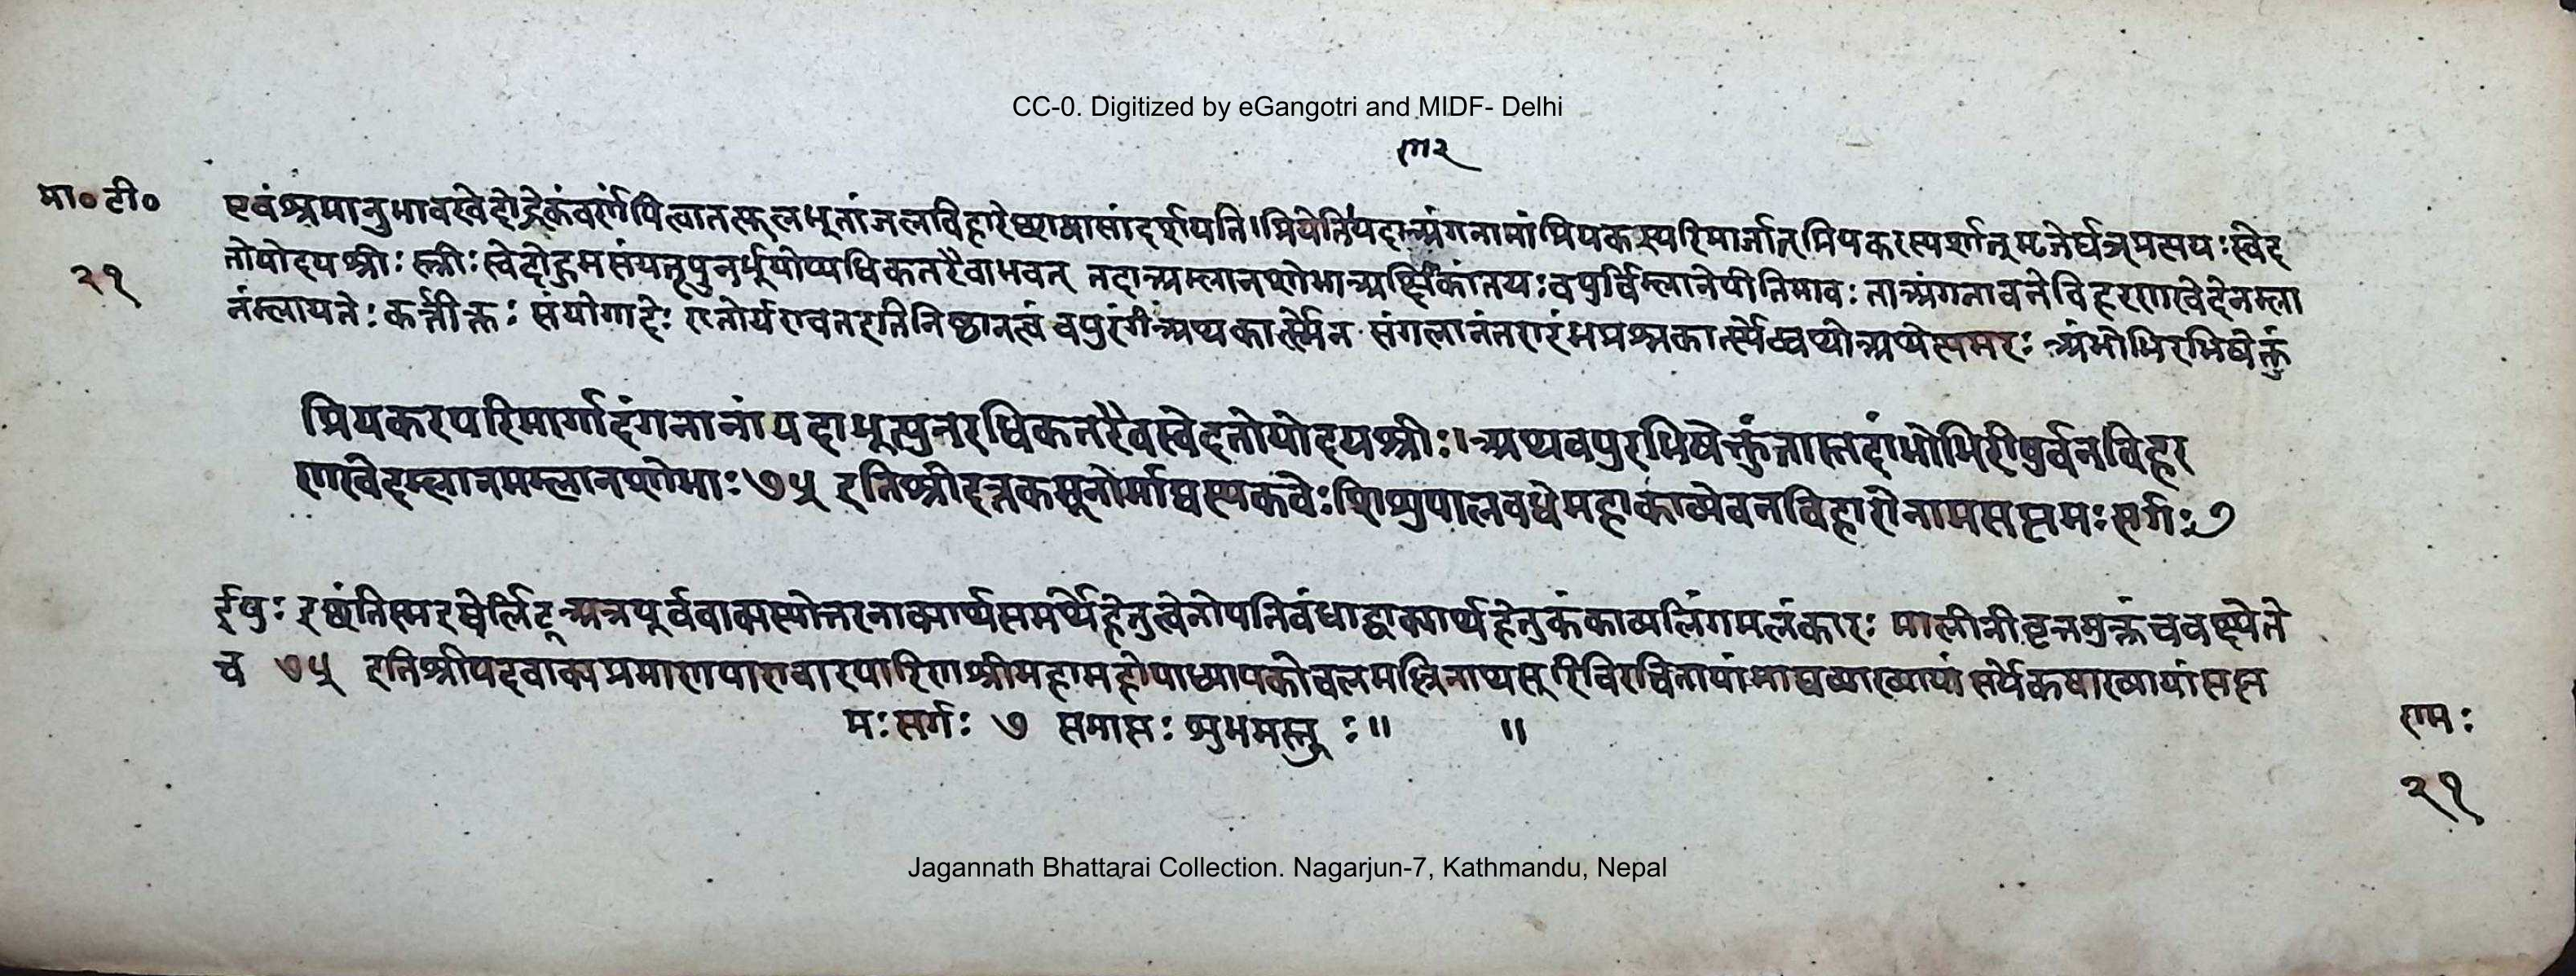 CC-0. Digitized by eGangotri and MIDF- Delhi
मा० टी०
२१
एवंश्रमानुभावस्वेदोद्रेकंवर्णयित्वातत्फलभूतांजलविहारे दर्शयति।प्रियेति यदाअंगनानां
तोयोदयश्रीः स्त्रीः स्वेदोद्गमसंपत्पुनर्भूयोप्यधिकतरैवाभवत् तदाअम्लानशोभाअक्षीणकांतयः वपुर्विम्लानेपीतिभावः ताअंगनावनेविहरणखेदेनम्ला
नंम्लायतेः कर्त्तरिक्तः संयोगादेः वपुरंगंअथकार्त्स्न्येन मंगलानंतरारंभप्रश्नकार्त्स्न्येष्वथोअथेत्यमरः अंभोभिरभिषेक्तुं
प्रियकरपरिमार्गादंगनानांयदाभूत्पुनरधिकतरैवस्वेदतोयोदयश्रीः। अथवपुरभिषेक्तुंतास्तदांभोभिरीषुर्वनविहर
णखेदम्लानमम्लानशोभाः ७५ इतिश्रीदत्तकसूनोर्माघस्यकवेः शिशुपालवधेमहाकाव्येवनविहारोनामसप्तमः सर्गः ७
ईषुः इच्छंतिस्म लिट् अत्रपूर्ववाक्यस्योत्तरवाक्यार्थसमर्थहेतुत्वेनोपनिबंधाद्वाक्यार्थहेतुकंकाव्यलिंगमलंकारः मालीनीवृत्तमुक्तंच
च ७५ इतिश्रीपदवाक्यप्रमाणपारावारपारिणश्रीमहामहोपाध्यायकोचलमल्लिनाथसूरिविरचितायांमाघव्याख्यायां सर्वंकषाख्यायांसप्त
मः सर्गः ७ समाप्तः शुभमस्तु ः॥ ॥
रामः
२१
Jagannath Bhattarai Collection. Nagarjun-7, Kathmandu, Nepal